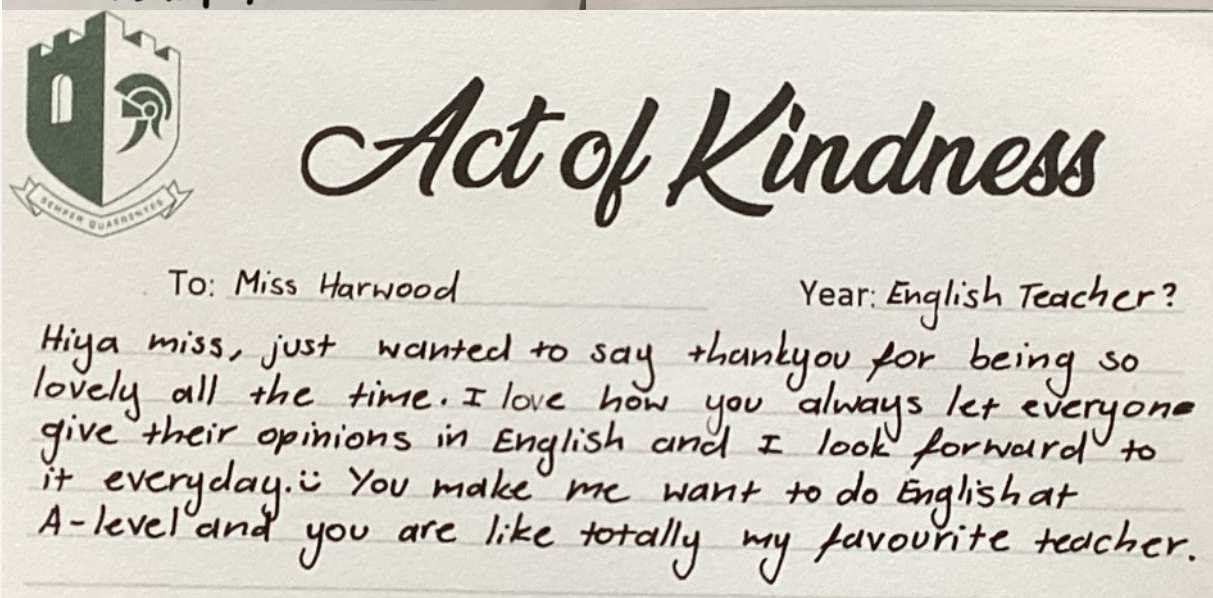 SEMPER QUAERENTES
Act of Kindness
To: Miss Harwood
Year: English Teacher?
Hiya miss, just wanted to say thankyou for being so
lovely all the time. I love how you always let everyone
give their opinions in English and I look forward to
it everyday.ü You make me want to do English at
A-level and you are like totally my favourite teacher.